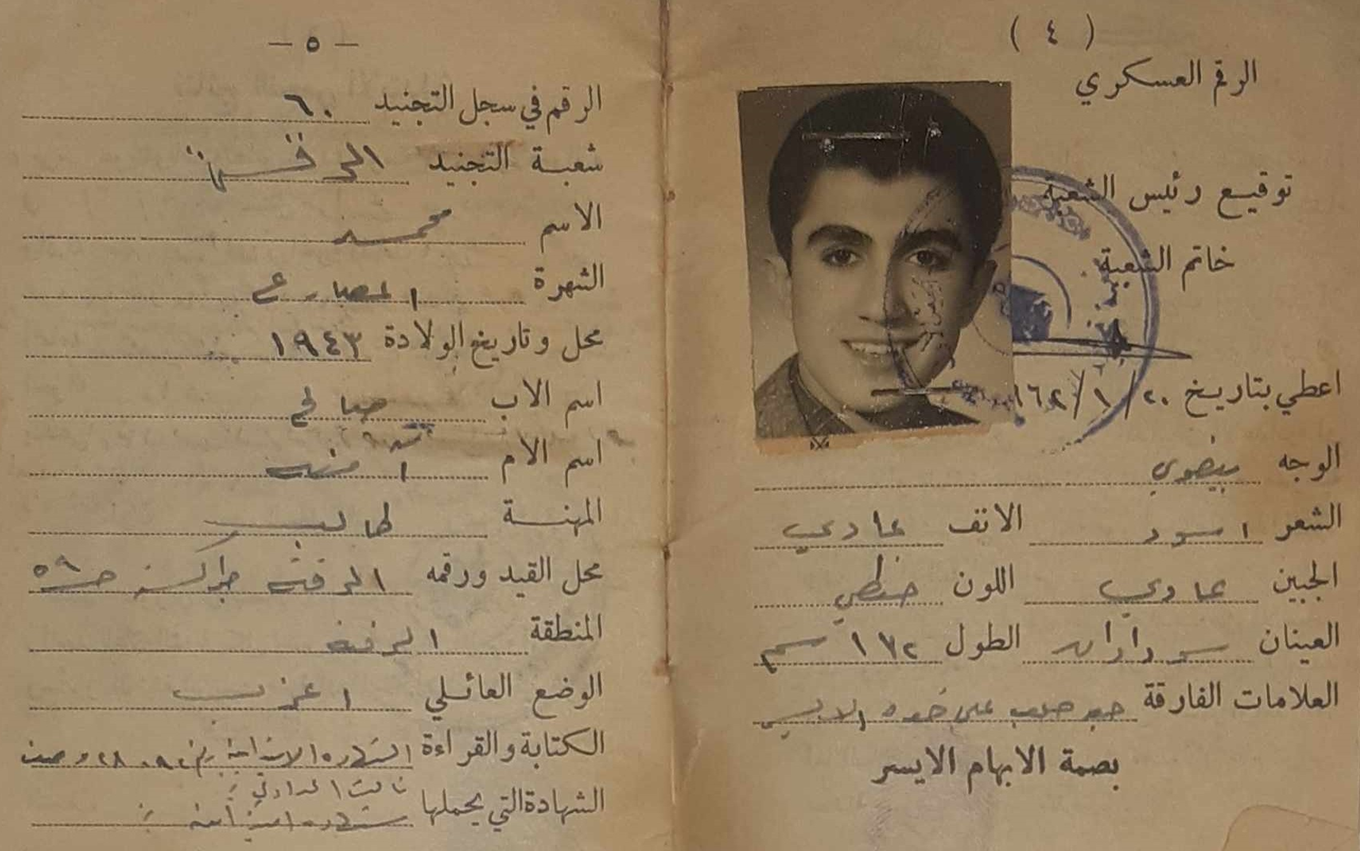 ( ٤ )
الرقم العسكري
توقيع رئيس الشعبة
خاتم الشعبة
اعطي بتاريخ ٢٠/١/٩٦٢
الوجه بيضوي
الشعر اسود الانف عادي
الجبين عادي اللون حنطي
العينان سوداوان الطول ١٧٢ سم
العلامات الفارقة على خده الايسر
بصمة الابهام الايسر
— ٥ —
الرقم في سجل التجنيد ٦٠
شعبة التجنيد الرقة
الاسم محمد
الشهرة المصارع
محل وتاريخ الولادة ١٩٤٣
اسم الاب صالح
اسم الام آمنه
المهنة طالب
محل القيد ورقمه الرقة
المنطقة الرقة
الوضع العائلي اعزب
الكتابة والقراءة الشهادة الابتدائية
الشهادة التي يحملها